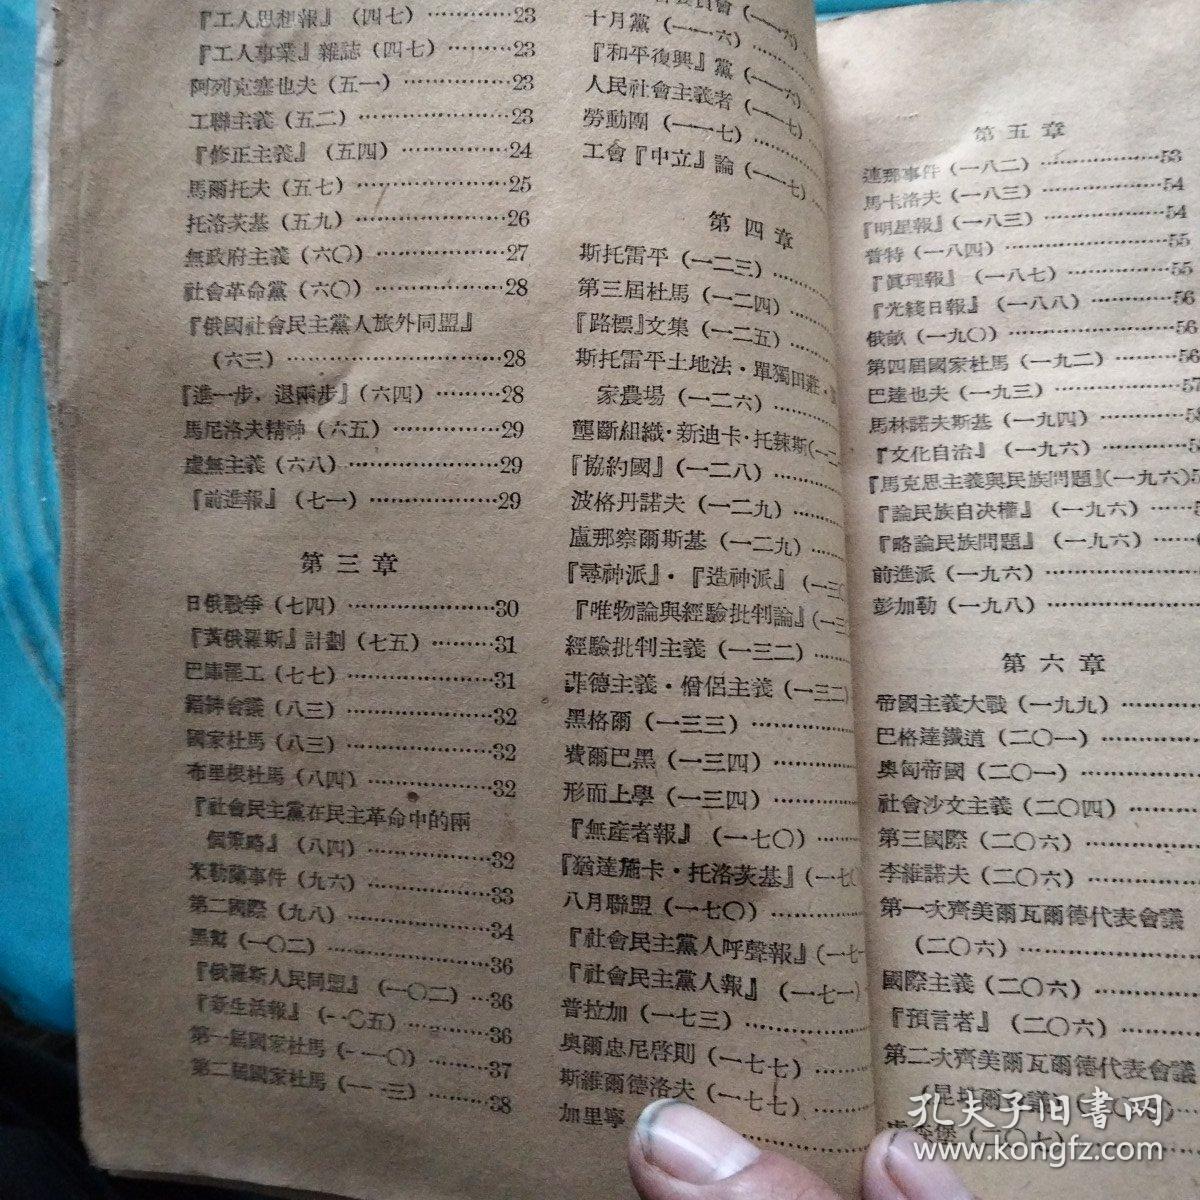 『工人思想報』（四七）………23
『工人事業』雜誌（四七）………23
阿列克塞也夫（五一）…………23
工聯主義（五二）………………23
『修正主義』（五四）……………24
馬爾托夫（五七）………………25
托洛茨基（五九）………………26
無政府主義（六〇）……………27
社會革命黨（六〇）……………28
『俄國社會民主黨人旅外同盟』
（六三）………………………28
『進一步，退兩步』（六四）………28
馬尼洛夫精神（六五）…………29
虛無主義（六八）………………29
『前進報』（七一）………………29
第三章
日俄戰爭（七四）………………30
『黃俄羅斯』計劃（七五）………31
巴庫罷工（七七）………………31
（八三）………………32
國家杜馬（八三）………………32
布里根杜馬（八四）……………32
『社會民主黨在民主革命中的兩
個策略』（八四）………………32
米勒蘭事件（九六）……………33
第二國際（九八）………………34
黑幫（一〇二）…………………36
『俄羅斯人民同盟』（一〇二）…36
『新生活報』（一〇五）…………36
第一屆國家杜馬（一一〇）……37
第二屆國家杜馬（一一三）……38
十月黨（一一六）…………
『和平復興』黨（一一六）
人民社會主義者（一一七）
勞動團（一一七）…………
工會『中立』論（一一七）
第四章
斯托雷平（一二三）…………
第三屆杜馬（一二四）………
『路標』文集（一二五）………
斯托雷平土地法·單獨田莊·
家農場（一二六）…………
壟斷組織·新迪卡·托辣斯（一二
『協約國』（一二八）…………
波格丹諾夫（一二九）………
盧那察爾斯基（一二九）……
『尋神派』·『造神派』（一三〇
『唯物論與經驗批判論』（一三
經驗批判主義（一三二）……
菲德主義·僧侶主義（一三二）
黑格爾（一三三）……………
費爾巴黑（一三四）…………
形而上學（一三四）…………
『無產者報』（一七〇）………
『猶達施卡·托洛茨基』（一七〇
八月聯盟（一七〇）…………
『社會民主黨人呼聲報』（一七一
『社會民主黨人報』（一七一）
普拉加（一七三）……………
奧爾忠尼啓則（一七七）……
斯維爾德洛夫（一七七）……
加里寧
第五章
連那事件（一八二）……………53
馬卡洛夫（一八三）……………54
『明星報』（一八三）……………54
普特（一八四）…………………55
『眞理報』（一八七）……………55
『光綫日報』（一八八）…………56
俄畝（一九〇）…………………56
第四屆國家杜馬（一九二）……56
巴達也夫（一九三）……………57
馬林諾夫斯基（一九四）………5
『文化自治』（一九六）…………5
『馬克思主義與民族問題』（一九六）5
『論民族自決權』（一九六）……
『略論民族問題』（一九六）……
前進派（一九六）………………
彭加勒（一九八）………………
第六章
帝國主義大戰（一九九）………
巴格達鐵道（二〇一）…………
奧匈帝國（二〇一）……………
社會沙文主義（二〇四）………
第三國際（二〇六）……………
李維諾夫（二〇六）……………
第一次齊美爾瓦爾德代表會議
（二〇六）……………………
國際主義（二〇六）……………
『預言者』（二〇六）……………
第二次齊美爾瓦爾德代表會議
（二〇七）
孔夫子旧書网
www.kongfz.com